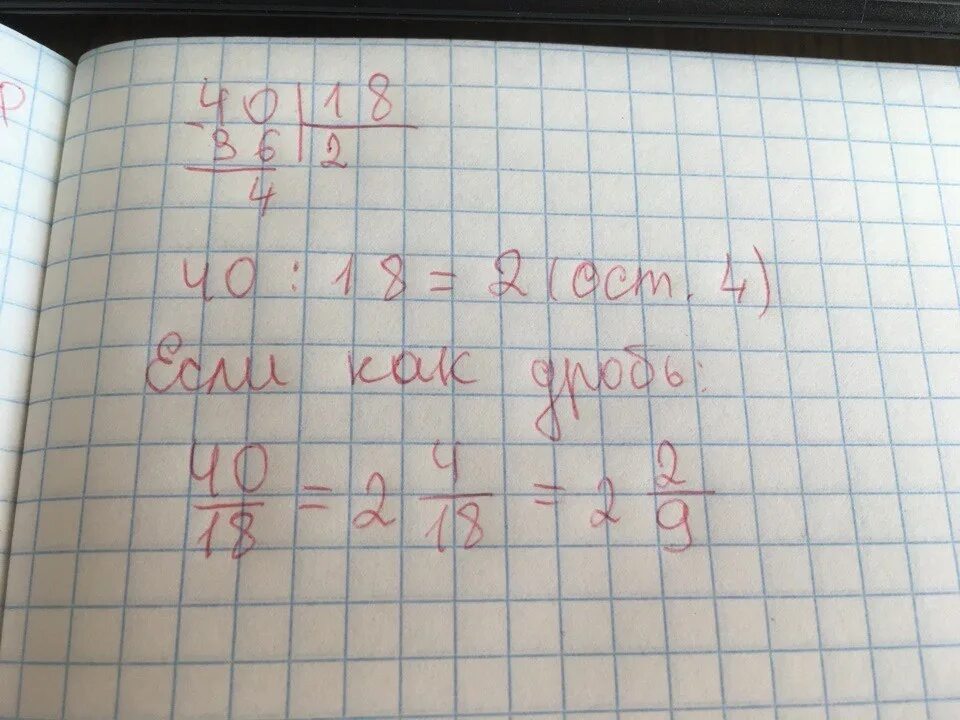 р
40 | 18
- 36 | 2
4
40 : 18 = 2 (ост. 4)
Если как дробь:
40/18 = 2 4/18 = 2 2/9